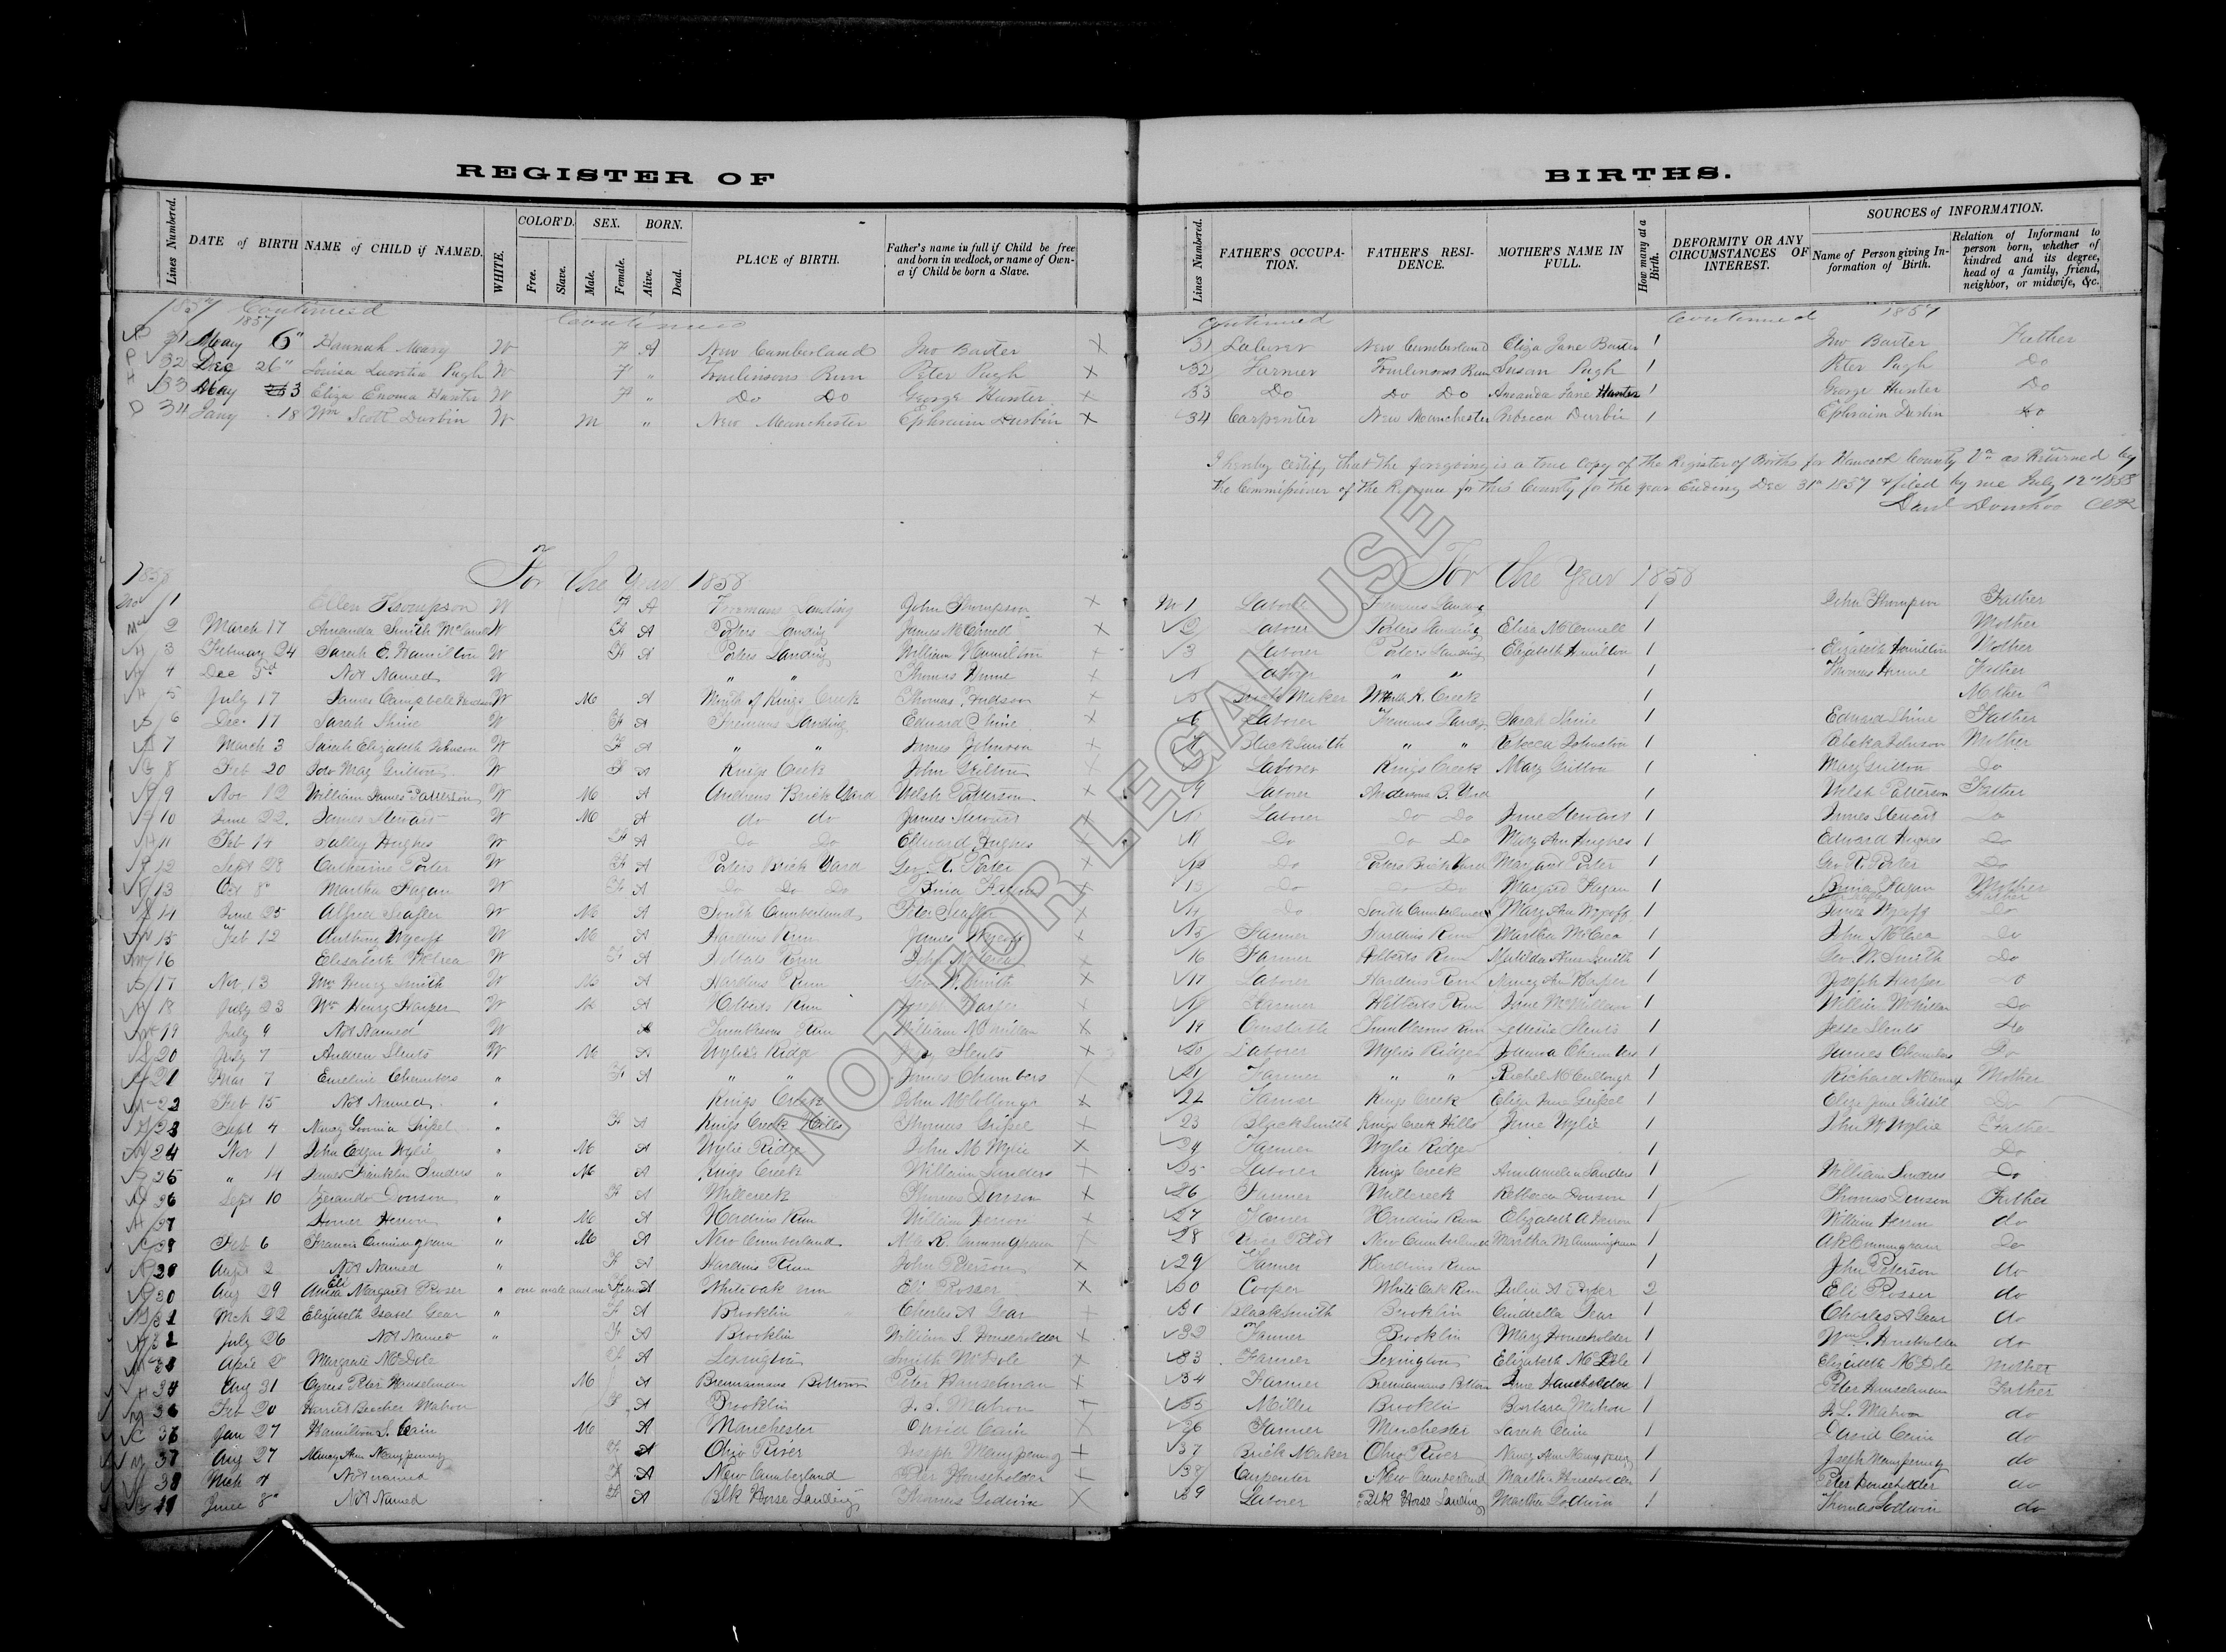 REGISTER OF BIRTHS.
Lines Numbered. DATE of BIRTH NAME of CHILD if NAMED. WHITE. COLOR'D. Free. Slave. SEX. Male. Female. BORN. Alive. Dead. PLACE of BIRTH. Father's name in full if Child be free and born in wedlock, or name of Owner if Child be born a Slave.
Lines Numbered. FATHER'S OCCUPATION. FATHER'S RESIDENCE. MOTHER'S NAME IN FULL. How many at a Birth. DEFORMITY OR ANY CIRCUMSTANCES OF INTEREST. SOURCES of INFORMATION. Name of Person giving Information of Birth. Relation of Informant to person born, whether of kindred and its degree, head of a family, friend, neighbor, or midwife, &c.
1857 Continued Continued Continued Continued 1857
1857
31 May 6" Hannah Mary W F A New Cumberland Jno Baxter X 31 Laborer New Cumberland Eliza Jane Baxter 1 Jno Baxter Father
32 Dec 26" Louisa Lucretia Pugh W F " Tomlinsons Run Peter Pugh X 32 Farmer Tomlinsons Run Susan Pugh 1 Peter Pugh Do
33 May 3 Eliza Emma Hunter W F " Do Do George Hunter X 33 Do Do Do Amanda Jane Hunter 1 George Hunter Do
34 Jany 18 Wm Scott Durbin W M " New Manchester Ephraim Durbin X 34 Carpenter New Manchester Rebecca Durbin 1 Ephraim Durbin do
I hereby certify that the foregoing is a true copy of the Register of Births for Hancock County Va as Returned by
the Commissioner of the Revenue for this County for the year Ending Dec 31st 1857 & filed by me July 12th 1858
Danl Donehoo Clk
1858 For the Year 1858 For the Year 1858
1 Ellen Thompson W F A Freemans Landing John Thompson X 1 Laborer Freemans Landing 1 John Thompson Father
2 March 17 Amanda Smith W F A Porters Landing James McConnell X 2 Laborer Porters Landing Eliza McConnell 1 Mother
3 February 24 Sarah E. Hamilton W F A Porters Landing William Hamilton X 3 Laborer Porters Landing Elizabeth Hamilton 1 Elizabeth Hamilton Mother
4 Dec 5d Not Named W " " Thomas Hume X 4 Laborer " " 1 Thomas Hume Father
5 July 17 James Campbell W M A Mouth of Kings Creek Thomas X 5 Maker Mouth K. Creek 1 Mother
6 Dec. 17 Sarah Shine W F A Freemans Landing Edward Shine X 6 Laborer Freemans Landg Sarah Shine 1 Edward Shine Father
7 March 3 Sarah Elizabeth Johnson W F A " " James Johnson X 7 BlackSmith " " Rebecca Johnston 1 Rebeka Johnson Mother
8 Feb 20 Gritton W F A Kings Creek John Gritton X 8 Laborer Kings Creek Mary Gritton 1 Mary Gritton Do
9 Nov 12 William James Patterson W M A Andrews Brick Yard Welsh Patterson X 9 Laborer Andersons B. Yard 1 Welsh Patterson Father
10 June 22. James Stewart W M A do do James Stewart X 10 Laborer Do Do Jane Stewart 1 James Stewart Do
11 Feb 14 Salley Hughes W F A Do Do Edward Hughes X 11 Do Do Do Mary Ann Hughes 1 Edward Hughes Do
12 Sept 28 Catherine Porter W F A Porters Brick Yard Porter X 12 Do Porters Brick Yard Margaret Porter 1 Geo. R. Porter Do
13 Oct 8" Martha Fagan W F A Do Do Do Fagan X 13 Do Do Do Margaret Fagan 1 Fagan Mother
14 June 25 Alfred W M A South Cumberland Peter X 14 Do South Cumberland Mary Ann Wycoff 1 James Wycoff Father Do
15 Feb 12 Anthony Wycoff W M A Hardins Run James Wycoff X 15 Farmer Hardins Run Martha McCrea 1 John McCrea Do
16 Elizabeth McCrea W F A Run John X 16 Farmer Run Matilda Smith 1 Geo. W. Smith Do
17 Nov. 13 Wm Henry Smith W M A Hardins Run Geo. W. Smith X 17 Laborer Hardins Run Nancy Ann Harper 1 Joseph Harper
18 July 23 Wm Henry Harper W M A Run Joseph Harper X 18 Farmer Run Jane McMillian 1 William McMillan Do
19 July 9 Not Named W A Run William McMillan X 19 Constable Run Slents 1 Jesse Slents Do
20 July 7 Andrew Slents W M A Wylies Ridge Slents X 20 Laborer Wylies Ridge Chambers 1 James Chambers Do
21 Mar 7 Emeline Chambers " F A " " James Chambers 21 Farmer " " Rachel McCullough 1 Richard Mother
22 Feb 15 Not Named " Kings Creek John X 22 Farmer Kings Creek Eliza Jane 1 Eliza Jane Do
23 Sept 4 Nancy " F A Kings Creek Hills Thomas X 23 BlackSmith Kings Creek Hills Jane Wylie 1 John M Wylie Father
24 Nov 1 John Edgar Wylie " M A Wylie Ridge John M Wylie X 24 Farmer Wylie Ridge 1 Do
25 " 14 James Franklin Sanders " M A Kings Creek William Sanders X 25 Laborer Kings Creek Sanders 1 William Sanders Do
26 Sept 10 " F A Millcreek Thomas X 26 Farmer Millcreek Rebecca 1 Thomas Father
27 Herron " M A Hardins Run William Herron X 27 Farmer Hardins Run Elizabeth A Herron 1 William Herron do
28 Feb 6 Francis Cunningham " M A New Cumberland R. Cunningham 28 River Pilot New Cumberland Martha M Cunningham 1 A R Cunningham Do
29 Augt 2 Not Named " F A Hardins Run John Peterson X 29 Farmer Hardins Run 1 John Peterson do
30 Aug 29 Eli Margaret Rosser " one male and one female A White oak run Eli Rosser X 30 Cooper White Oak Run Julia A 2 Eli Rosser do
31 Mch 22 Elizabeth Isabel Gear " F A Brooklin Charles A Gear X 31 Blacksmith Brooklin Cindrella Gear 1 Charles A Gear do
32 July 26 Not Named " F A Brooklin William S. Householder X 32 Farmer Brooklin Mary Householder 1 Wm S. Householder do
33 April Margrate McDole F A Lexington Smith McDole X 33 Farmer Lexington Elizabeth McDole 1 Elizabeth McDole Mother
34 Aug 31 Cyrus Peter Hanselman M A Brennamans Bottom Peter Hanselman X 34 Farmer Brennamans Bottom Jane Householder 1 Peter Hanselman Father
Feb 20 Harriet Beecher Mahon F A Brooklin Mahon X 35 Miller Brooklin Barbara Mahon 1 Mahon do
36 Jan 27 Hamilton S. Cain M A Manchester David Cain X 36 Farmer Manchester Sarah Cain 1 David Cain do
37 Aug 27 Nancy Ann Manypenny F A Ohio River Joseph Manypenny X 37 Brick Maker Ohio River Nancy Ann Manypenny 1 Joseph Manypenny do
38 Mch 4 Not named F A New Cumberland Peter Householder X 38 Carpenter New Cumberland Martha Householder 1 Peter Householder do
June 8" Not Named F A Blk Horse Landing Thomas Godwin X 39 Laborer Blk Horse Landing Martha Godwin 1 Thomas Godwin do
NOT FOR LEGAL USE